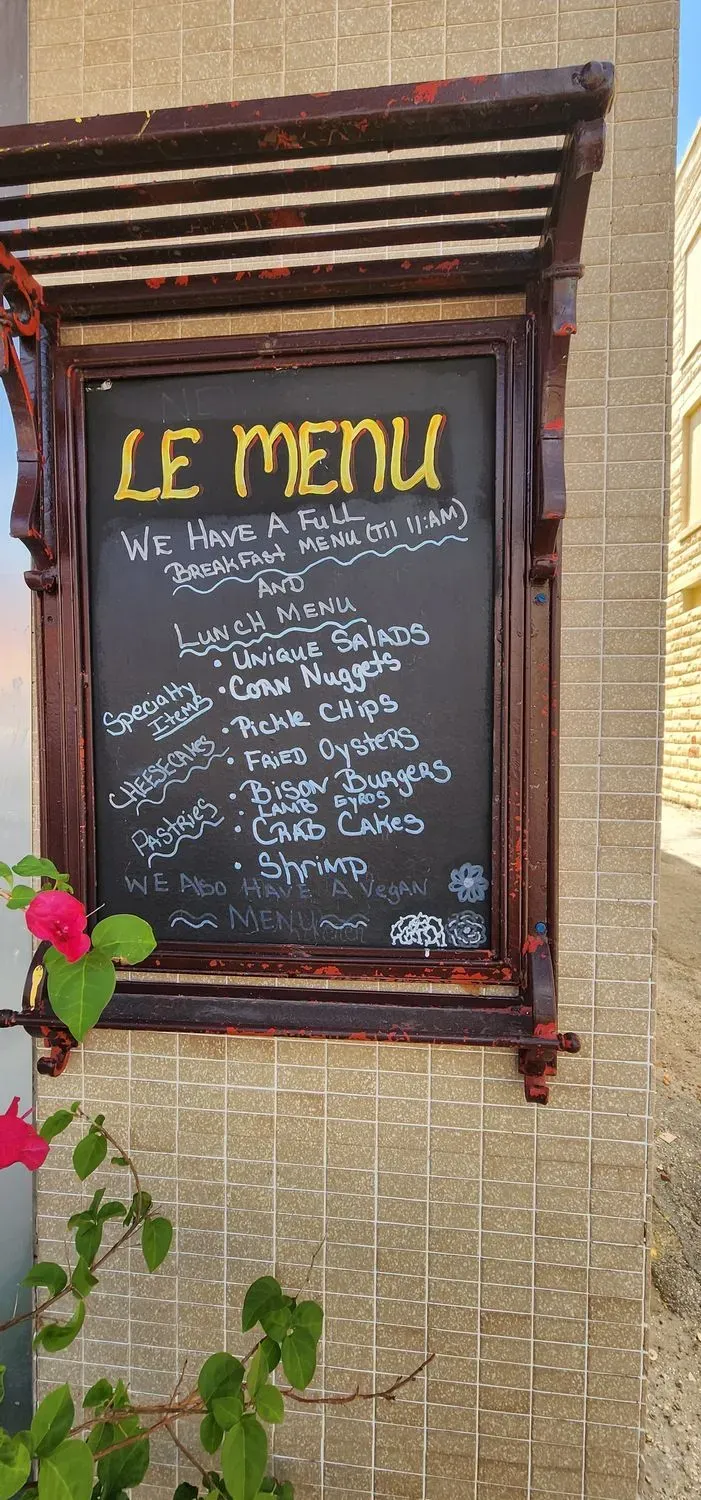 NEW
LE MENU
WE HAVE A FULL
BREAKFAST MENU (Til 11:AM)
AND
LUNCH MENU
• UNIQUE SALADS
• CORN NuggetS
Specialty
Items
• Pickle CHips
• FRIED OysteRS
CHEESECAKES
• BISON BuRgeRS
LAMB GYROS
• CRAB CaKes
Pastries
• SHRimp
WE AlSO HAVE A Vegan
MENU